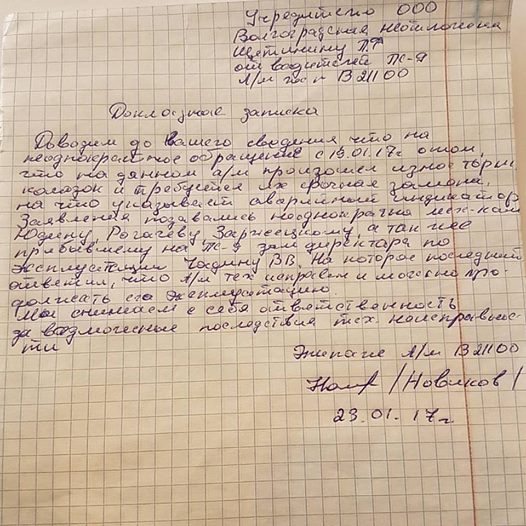 Учредителю ООО
Волгоградская неотложка
Щетинину П.Ф
от водителей ПС-9
А/м гос н В 211 00
Докладная записка
Доводим до Вашего сведения что на
неоднократное обращение с 19.01.17г о том,
что на данном а/м произошел износ торм
колодок и требуется их срочная замена,
на что указывает аварийный индикатор.
Заявления подавались неоднократно мех-кам
Юдину, Рогачеву Заржецкому, а так же
прибывшему на ПС-9 зам директара по
эксплуатации Чадину ВВ. На которое последний
ответил, что А/м тех исправен и можно про-
должать его эксплуатацию
Мы снимаем с себя ответственность
за возможные последствия тех неисправнос-
ти
Экипаж А/м В 211 00
/Новиков/
23.01.17г